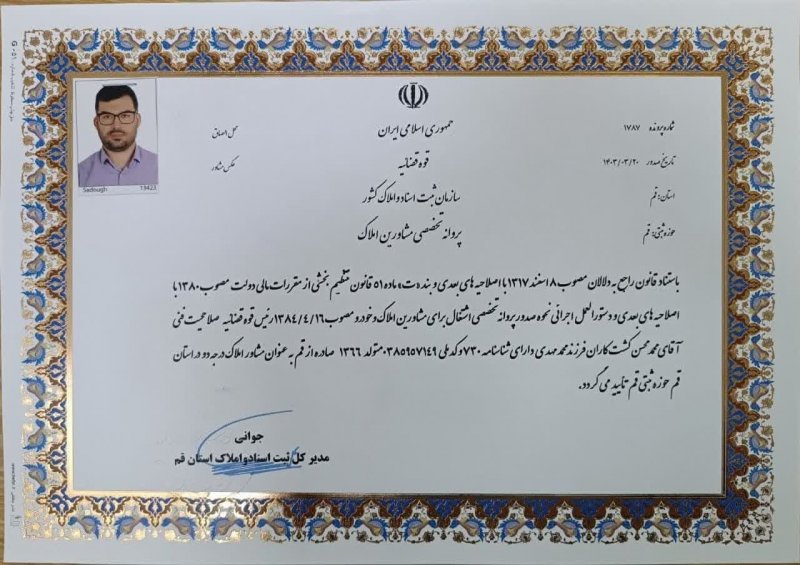 جمهوری اسلامی ایران
قوه قضائیه
سازمان ثبت اسناد و املاک کشور
پروانه تخصصی مشاورین املاک
شماره پرونده ۱۷۸۷
تاریخ صدور ۱۴۰۳/۰۳/۲۰
استان: قم
حوزه ثبتی: قم
محل الصاق
عکس مشاور
Sadough 13423
باستناد قانون راجع به دلالان مصوب ۸ اسفند ۱۳۱۷ با اصلاحیه های بعدی و بند «ت» ماده ۵۱ قانون تنظیم بخشی از مقررات مالی دولت مصوب ۱۳۸۰ با
اصلاحیه های بعدی و دستورالعمل اجرائی نحوه صدور پروانه تخصصی اشتغال برای مشاورین املاک و خودرو مصوب ۱۳۸۴/۴/۱۶ رئیس قوه قضائیه صلاحیت فنی
آقای محمد محسن کشت کاران فرزند محمد مهدی دارای شناسنامه ۷۳۰ و کد ملی ۰۳۸۵۹۵۷۱۴۹ متولد ۱۳۶۶ صادره از قم به عنوان مشاور املاک درجه دو در استان
قم حوزه ثبتی قم تأیید می گردد.
جوانی
مدیر کل ثبت اسناد و املاک استان قم